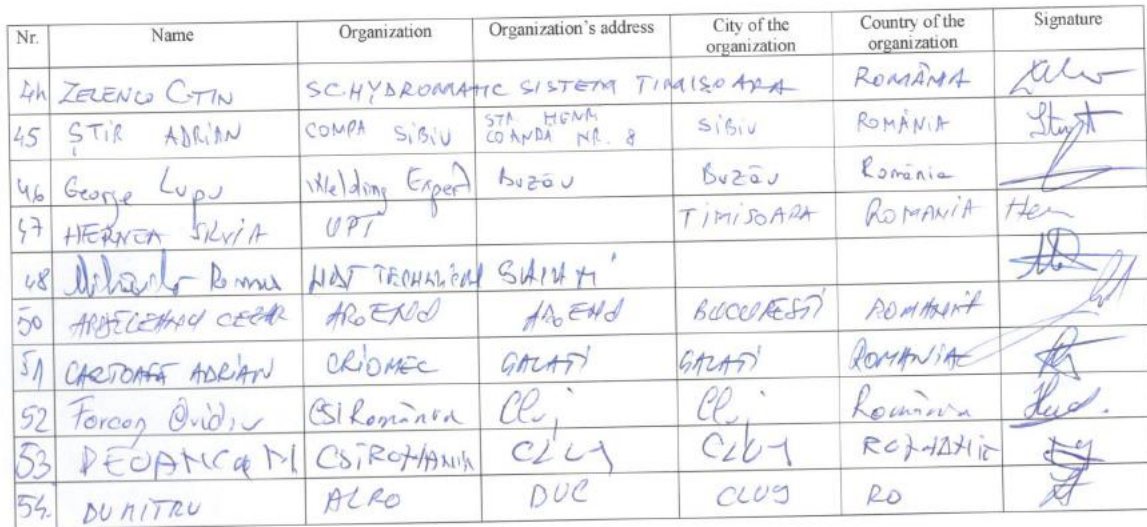 Nr. Name Organization Organization's address City of the organization Country of the organization Signature
44 ZELENCO CTIN SC.HYDROMATIC SISTEM TIMISOARA ROMÂNIA
45 ȘTIR ADRIAN COMPA SIBIU STR. HENRI COANDA NR. 8 SIBIU ROMÂNIA
46 George Lupu Welding Expert Buzău Buzău România
47 HERNEA SILVIA UPT TIMISOARA ROMANIA
48 HOT TECHNICAL
50 CEZAR BUCURESTI ROMANIA
51 ADRIAN CRIOMEC GALATI GALATI ROMANIA
52 Ovidiu CSI România Cluj Cluj România
53 CSI ROMANIA CLUJ CLUJ ROMANIA
54. DUMITRU ALRO CLUJ RO